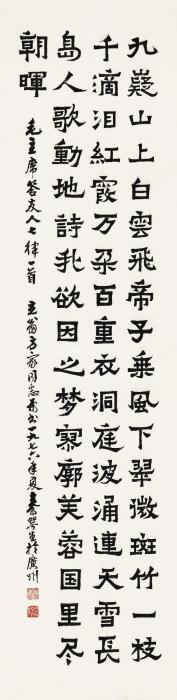 九嶷山上白雲飛帝子乘風下翠微斑竹一枝
千滴泪紅霞万朵百重衣洞庭波涌連天雪長
島人歌動地詩我欲因之梦寥廓芙蓉国里尽
朝暉
毛主席答友人七律一首 方家同志 一九七六年夏秦咢生於廣州